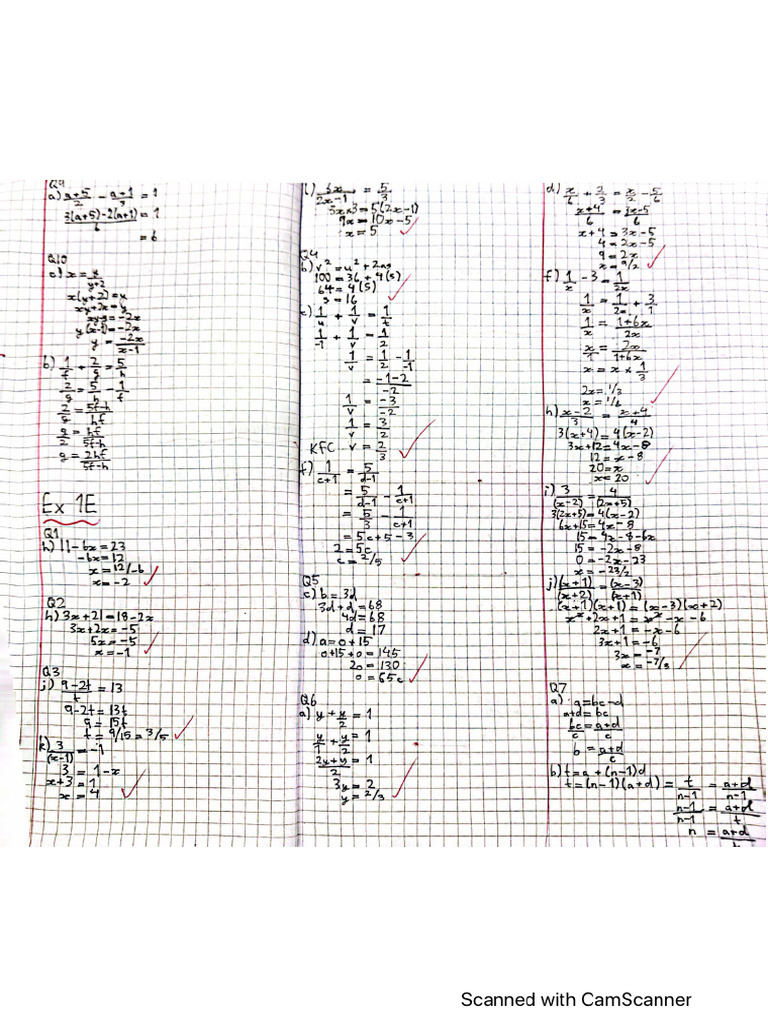 Q9
a) (a+5)/2 - (a+1)/3 = 1
(3(a+5)-2(a+1))/6 = 1
= 6
Q10
x = y/(y+2)
x(y+2) = x
xy+2x = y
xy-y = -2x
y(x-1) = -2x
y = -2x/(x-1)
b) 1/f + 2/g = 5/h
2/g = 5/h - 1/f
2/g = (5f-h)/hf
g/2 = hf/(5f-h)
g = 2hf/(5f-h)
Ex 1E
Q1
h) 11-6x = 23
-6x = 12
x = 12/-6
x = -2
Q2
h) 3x+21 = 18-2x
3x+2x = -5
5x = -5
x = -1
Q3
j) (9-2t)/t = 13
9-2t = 13t
9 = 15t
t = 9/15 = 3/5
k) 3/(x-1) = -1
3 = 1-x
x+3 = 1
x = 4
l) 3x/(2x-1) = 5/3
3x×3 = 5(2x-1)
9x = 10x-5
x = 5
Q4
b) v² = u² + 2as
100 = 36 + 4(s)
64 = 4(s)
s = 16
1/u + 1/v = 1/t
1/-1 + 1/v = 1/2
1/v = 1/2 - 1/-1
= (-1-2)/-2
1/v = -3/-2
1/v = 3/2
KFC v = 2/3
f) 1/(c+1) = 5/(d-1)
= 5/(d-1) - 1/(c+1)
= 5/3 - 1/(c+1)
= 5c+5-3
2 = 5c
c = 2/5
Q5
c) b = 3d
3d+d = 68
4d = 68
d = 17
d) a = o+15
o+15+o = 145
2o = 130
o = 65c
Q6
a) y + y/2 = 1
y/1 + y/2 = 1
(2y+y)/2 = 1
3y = 2
y = 2/3
d) x/6 + 2/3 = x/2 - 5/6
(x+4)/6 = (3x-5)/6
x+4 = 3x-5
4 = 2x-5
9 = 2x
x = 9/2
f) 1/x - 3 = 1/2x
1/x = 1/2x + 3/1
1/x = (1+6x)/2x
x/1 = 2x/(1+6x)
x = x × 1/3
2x = 1/3
x = 1/6
h) (x-2)/3 = (x+4)/4
3(x+4) = 4(x-2)
3x+12 = 4x-8
12 = x-8
20 = x
x = 20
i) 3/(x-2) = 4/(2x+5)
3(2x+5) = 4(x-2)
6x+15 = 4x-8
15 = 4x-8-6x
15 = -2x-8
0 = -2x-23
x = -23/2
j) (x+1)/(x+2) = (x-3)/(x+1)
(x+1)(x+1) = (x-3)(x+2)
x²+2x+1 = x²-x-6
2x+1 = -x-6
3x+1 = -6
3x = -7
x = -7/3
Q7
a) a = bc-d
a+d = bc
bc/c = (a+d)/c
b = (a+d)/c
b) t = a+(n-1)d
t = (n-1)(a+d) = t/(n-1) = (a+d)/(n-1)
(n-1)/(n-1) = (a+d)/t
n = (a+d)/t
Scanned with CamScanner